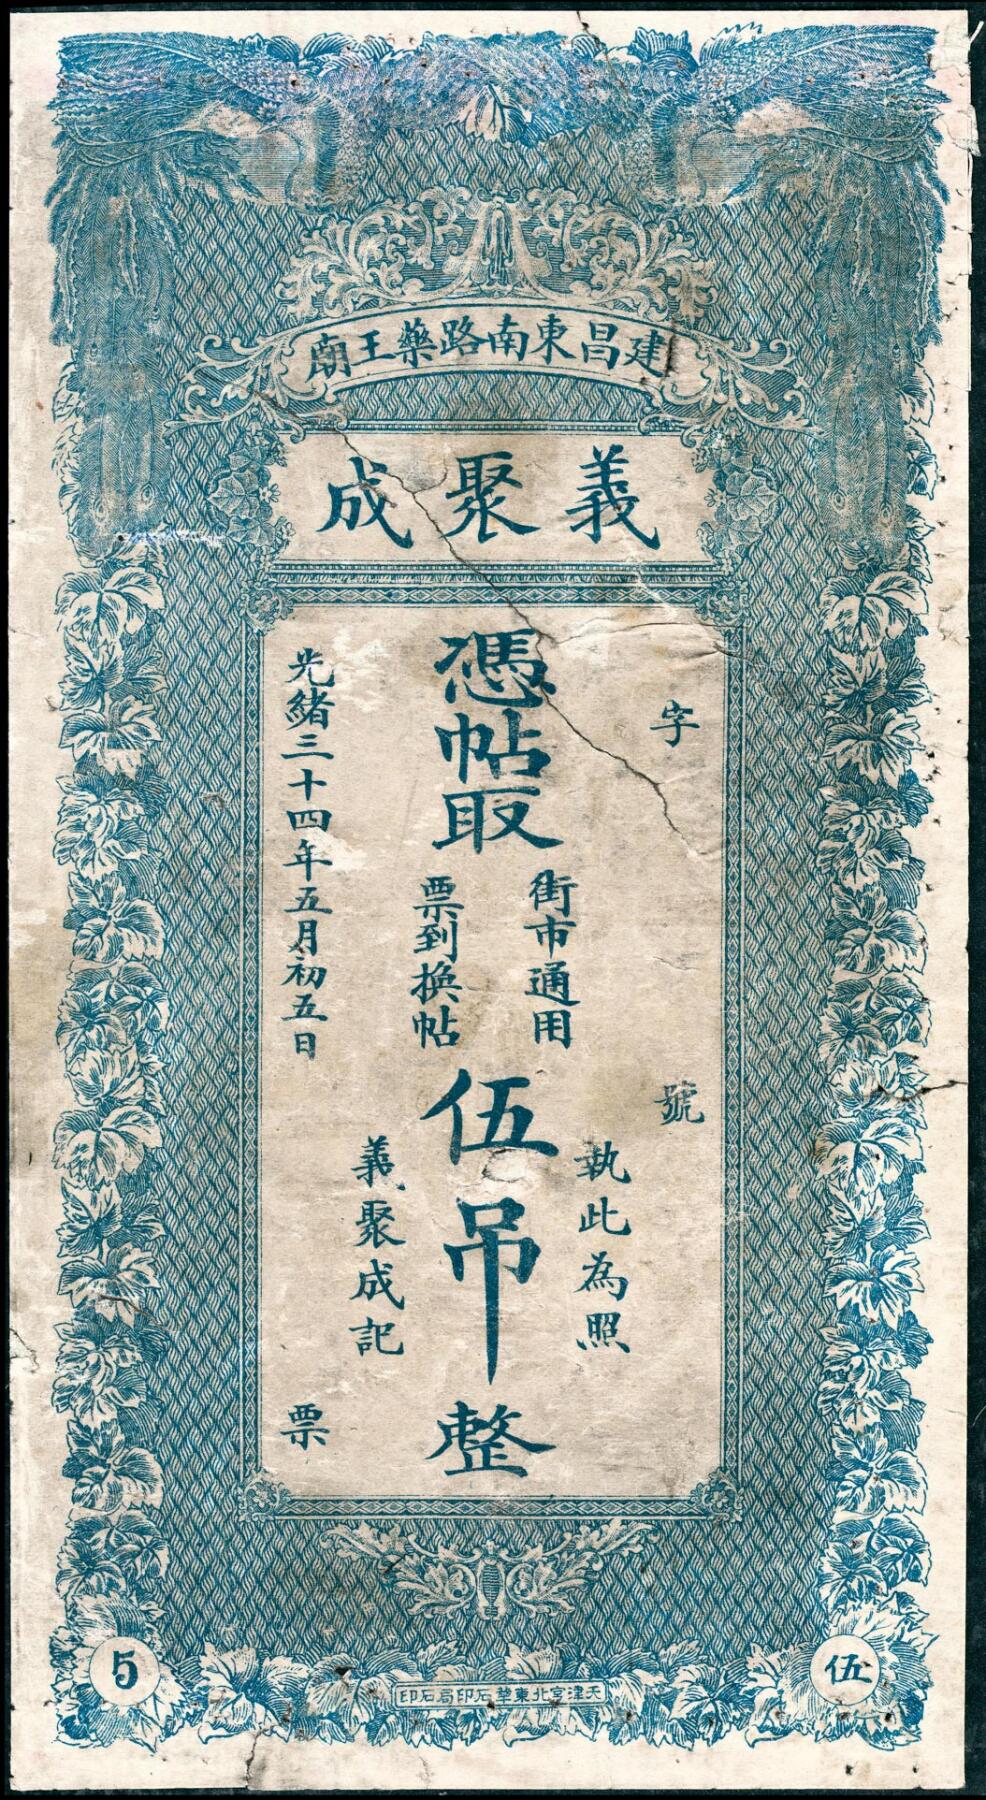 建昌東南路藥王廟
義聚成
字
號
執此為照
憑帖取
街市通用
票到換帖
伍吊整
義聚成記
光緒三十四年五月初五日
票
5
伍
天津宮北東華石印局石印